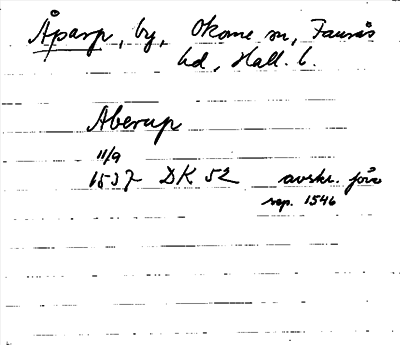 Åparp, by, Okome sn, Faurås
hd, Hall. l.
Aberup
11/9
1537 DK 52 avskr. före
sep. 1546